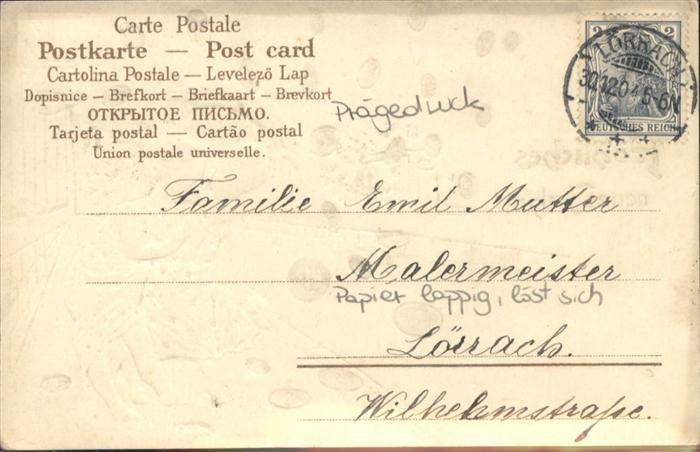 Carte Postale
Postkarte — Post card
Cartolina Postale — Levelező Lap
Dopisnice — Brefkort — Briefkaart — Brevkort
ОТКРЫТОЕ ПИСЬМО.
Tarjeta postal — Cartão postal
Union postale universelle.
Prägedruck
2 2
LÖRRACH
30.12.04 5-6N
DEUTSCHES REICH
Familie Emil Mutter
Malermeister
Papier lappig, löst sich
Lörrach.
Wilhelmstraße.